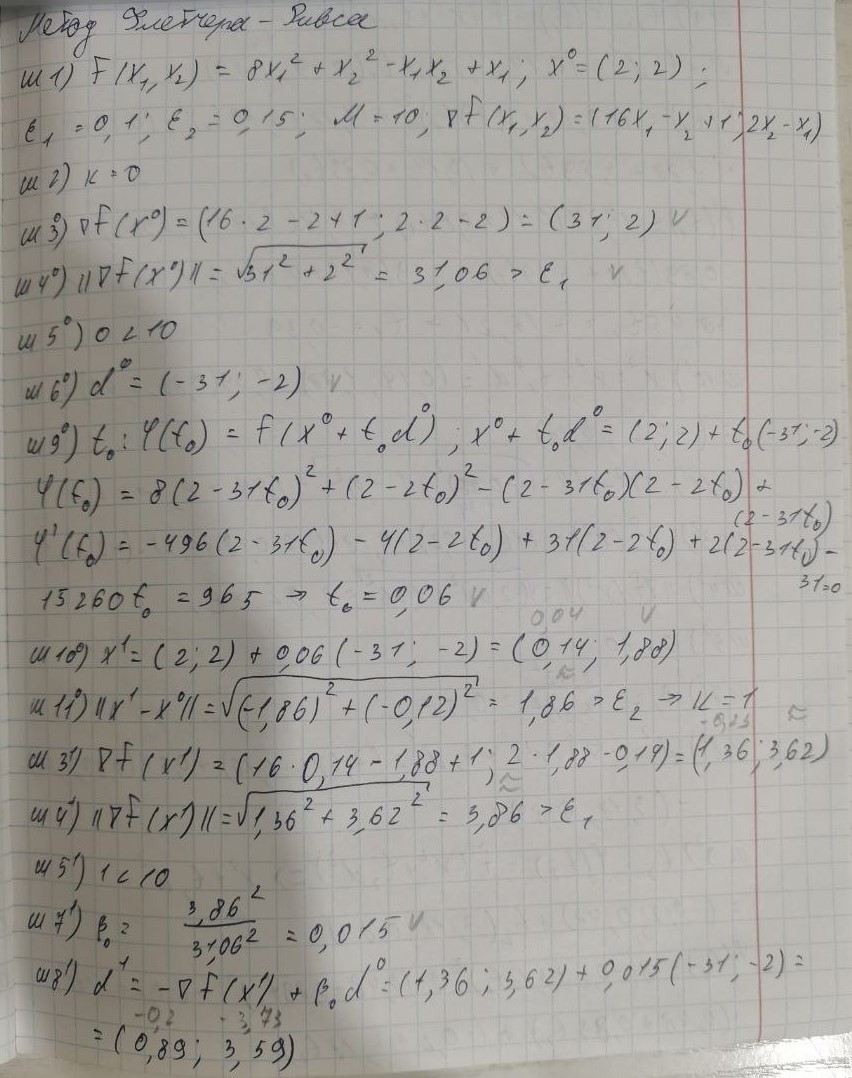 Метод Флетчера - Ривса
ш 1) F(x₁, x₂) = 8x₁² + x₂² - x₁x₂ + x₁; x⁰ = (2; 2);
ε₁ = 0,1; ε₂ = 0,15; M = 10; ∇f(x₁, x₂) = (16x₁ - x₂ + 1; 2x₂ - x₁)
ш 2) к = 0
ш 3⁰) ∇f(x⁰) = (16 · 2 - 2 + 1; 2 · 2 - 2) = (31; 2) v
ш 4⁰) ||∇f(x⁰)|| = √31² + 2² = 31,06 > ε₁ v
ш 5⁰) 0 < 10
ш 6⁰) d⁰ = (-31; -2) v
ш 9⁰) t₀: φ(t₀) = f(x⁰ + t₀d⁰); x⁰ + t₀d⁰ = (2; 2) + t₀(-31; -2)
φ(t₀) = 8(2 - 31t₀)² + (2 - 2t₀)² - (2 - 31t₀)(2 - 2t₀) +
(2 - 31t₀)
φ'(t₀) = -496(2 - 31t₀) - 4(2 - 2t₀) + 31(2 - 2t₀) + 2(2 - 31t₀) -
31 = 0
15260t₀ = 965 → t₀ = 0,06 v
0,04 v
ш 10⁰) x¹ = (2; 2) + 0,06(-31; -2) = (0,14; 1,88)
≈
ш 11⁰) ||x¹ - x⁰|| = √(-1,86)² + (-0,12)² = 1,86 > ε₂ → к = 1
-0,23 ≈
ш 3¹) ∇f(x¹) = (16 · 0,14 - 1,88 + 1; 2 · 1,88 - 0,14) = (1,36; 3,62)
≈
ш 4¹) ||∇f(x¹)|| = √1,36² + 3,62² = 3,86 > ε₁
ш 5¹) 1 < 10
ш 7¹) β₀ = 3,86² / 31,06² = 0,015 v
ш 8¹) d¹ = -∇f(x¹) + β₀d⁰ = (1,36; 3,62) + 0,015(-31; -2) =
-0,2 - 3,73
= (0,89; 3,59)